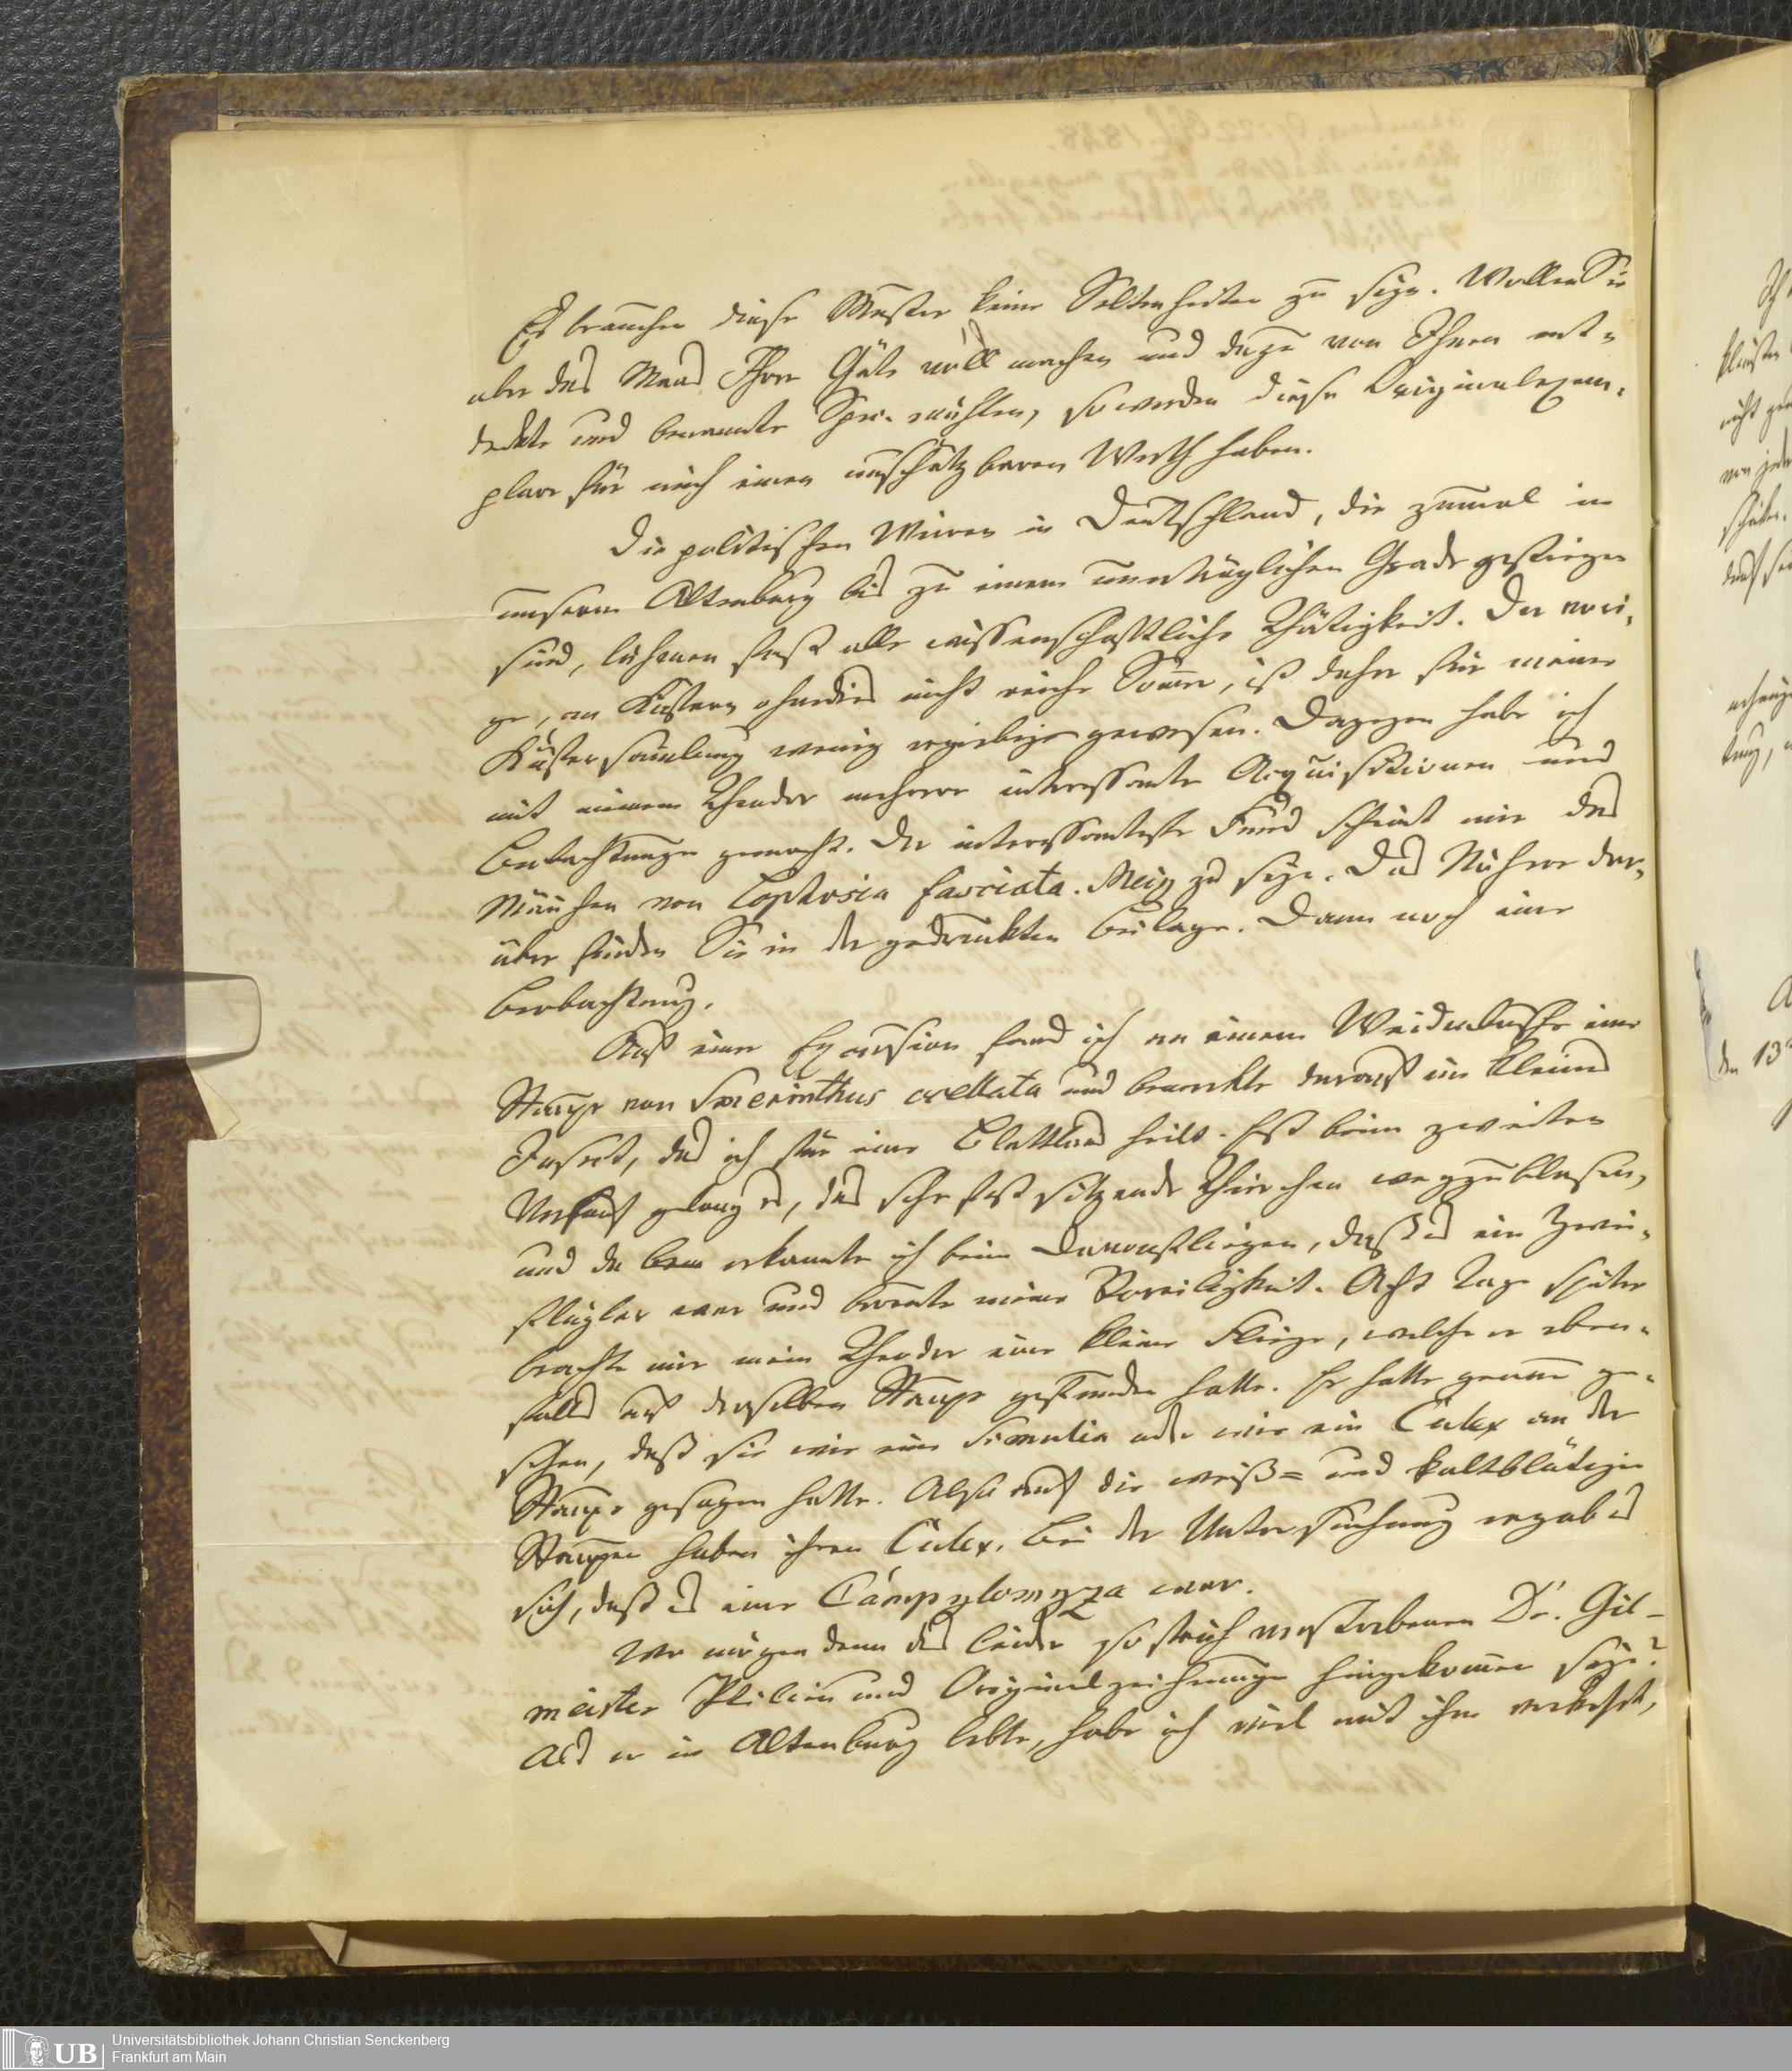 Es brauchen diese Muster keine Seltenheiten zu seyn. Wollen Sie
aber das Maas Ihrer Güte voll machen und dazu von Ihnen ent-
deckte und benannte Spec. wählen, so werden diese Originalexem-
plare für mich einen unschätzbaren Werth haben.
Die politischen Wirren in Deutschland, die zumal in
unserm Altenburg bis zu einem unerträglichen Grade gestiegen
sind, lähmen fast alle wissenschaftliche Thätigkeit. Der vori-
ge, an Küstern ohnedies nicht reiche Sommer, ist daher für meine
sammlung wenig ergiebig gewesen. Dagegen habe ich
mit meinem Theodor mehrere interessante Acquisitionen und
Beobachtungen gemacht. Der interessanteste Fund scheint mir das
Männchen von fasciata. Meig zu seyn. Das Nähere dar-
über finden Sie in der gedruckten Beilage. Dann noch eine
Beobachtung.
Auf einer Excursion fand ich an einem Weidenbusche eine
Raupe von Smerinthus ocellata und bemerkte darauf ein kleines
Insect, das ich für eine Blattlaus hielt. Erst beim zweiten
Versuch gelang es, das sehr fest sitzende Thierchen wegzublasen,
und da erkannte ich beim Davonfliegen, daß es ein Zwei-
flügler war und bereute meine Voreiligkeit. Acht Tage später
brachte mir mein Theodor eine kleine Fliege, welche er eben-
falls auf derselben Raupe gefunden hatte. Er hatte genau ge-
sehen, daß sie wie eine Simulia oder wie ein Culex an der
Raupe gesogen hatte. Also auch die weiß= und kaltblütigen
Raupen haben ihren Culex. Bei der Untersuchung ergab es
sich, daß es eine Campylomyza war.
Wo mögen denn des leider so früh verstorbenen Dr. Gil-
meister und Originalzeichnungen hingekommen seyn?
Als er in Altenburg lebte, habe ich viel mit ihm verkehrt,
den 13
UB
Universitätsbibliothek Johann Christian Senckenberg
Frankfurt am Main